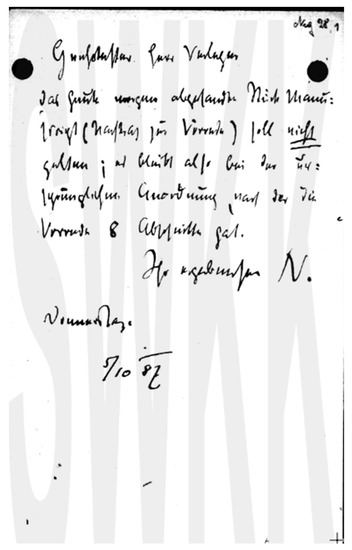 Geehrtester Herr Verleger
das heute morgen abgesandte Stück Manu=
skript (Nachtrag zur Vorrede) soll nicht
gelten; es bleibt also bei der ur=
sprünglichen Anordnung, nach der die
Vorrede 8 Abschnitte hat.
Ihr ergebenster N.
Donnerstag.
5/10 87
SWKK